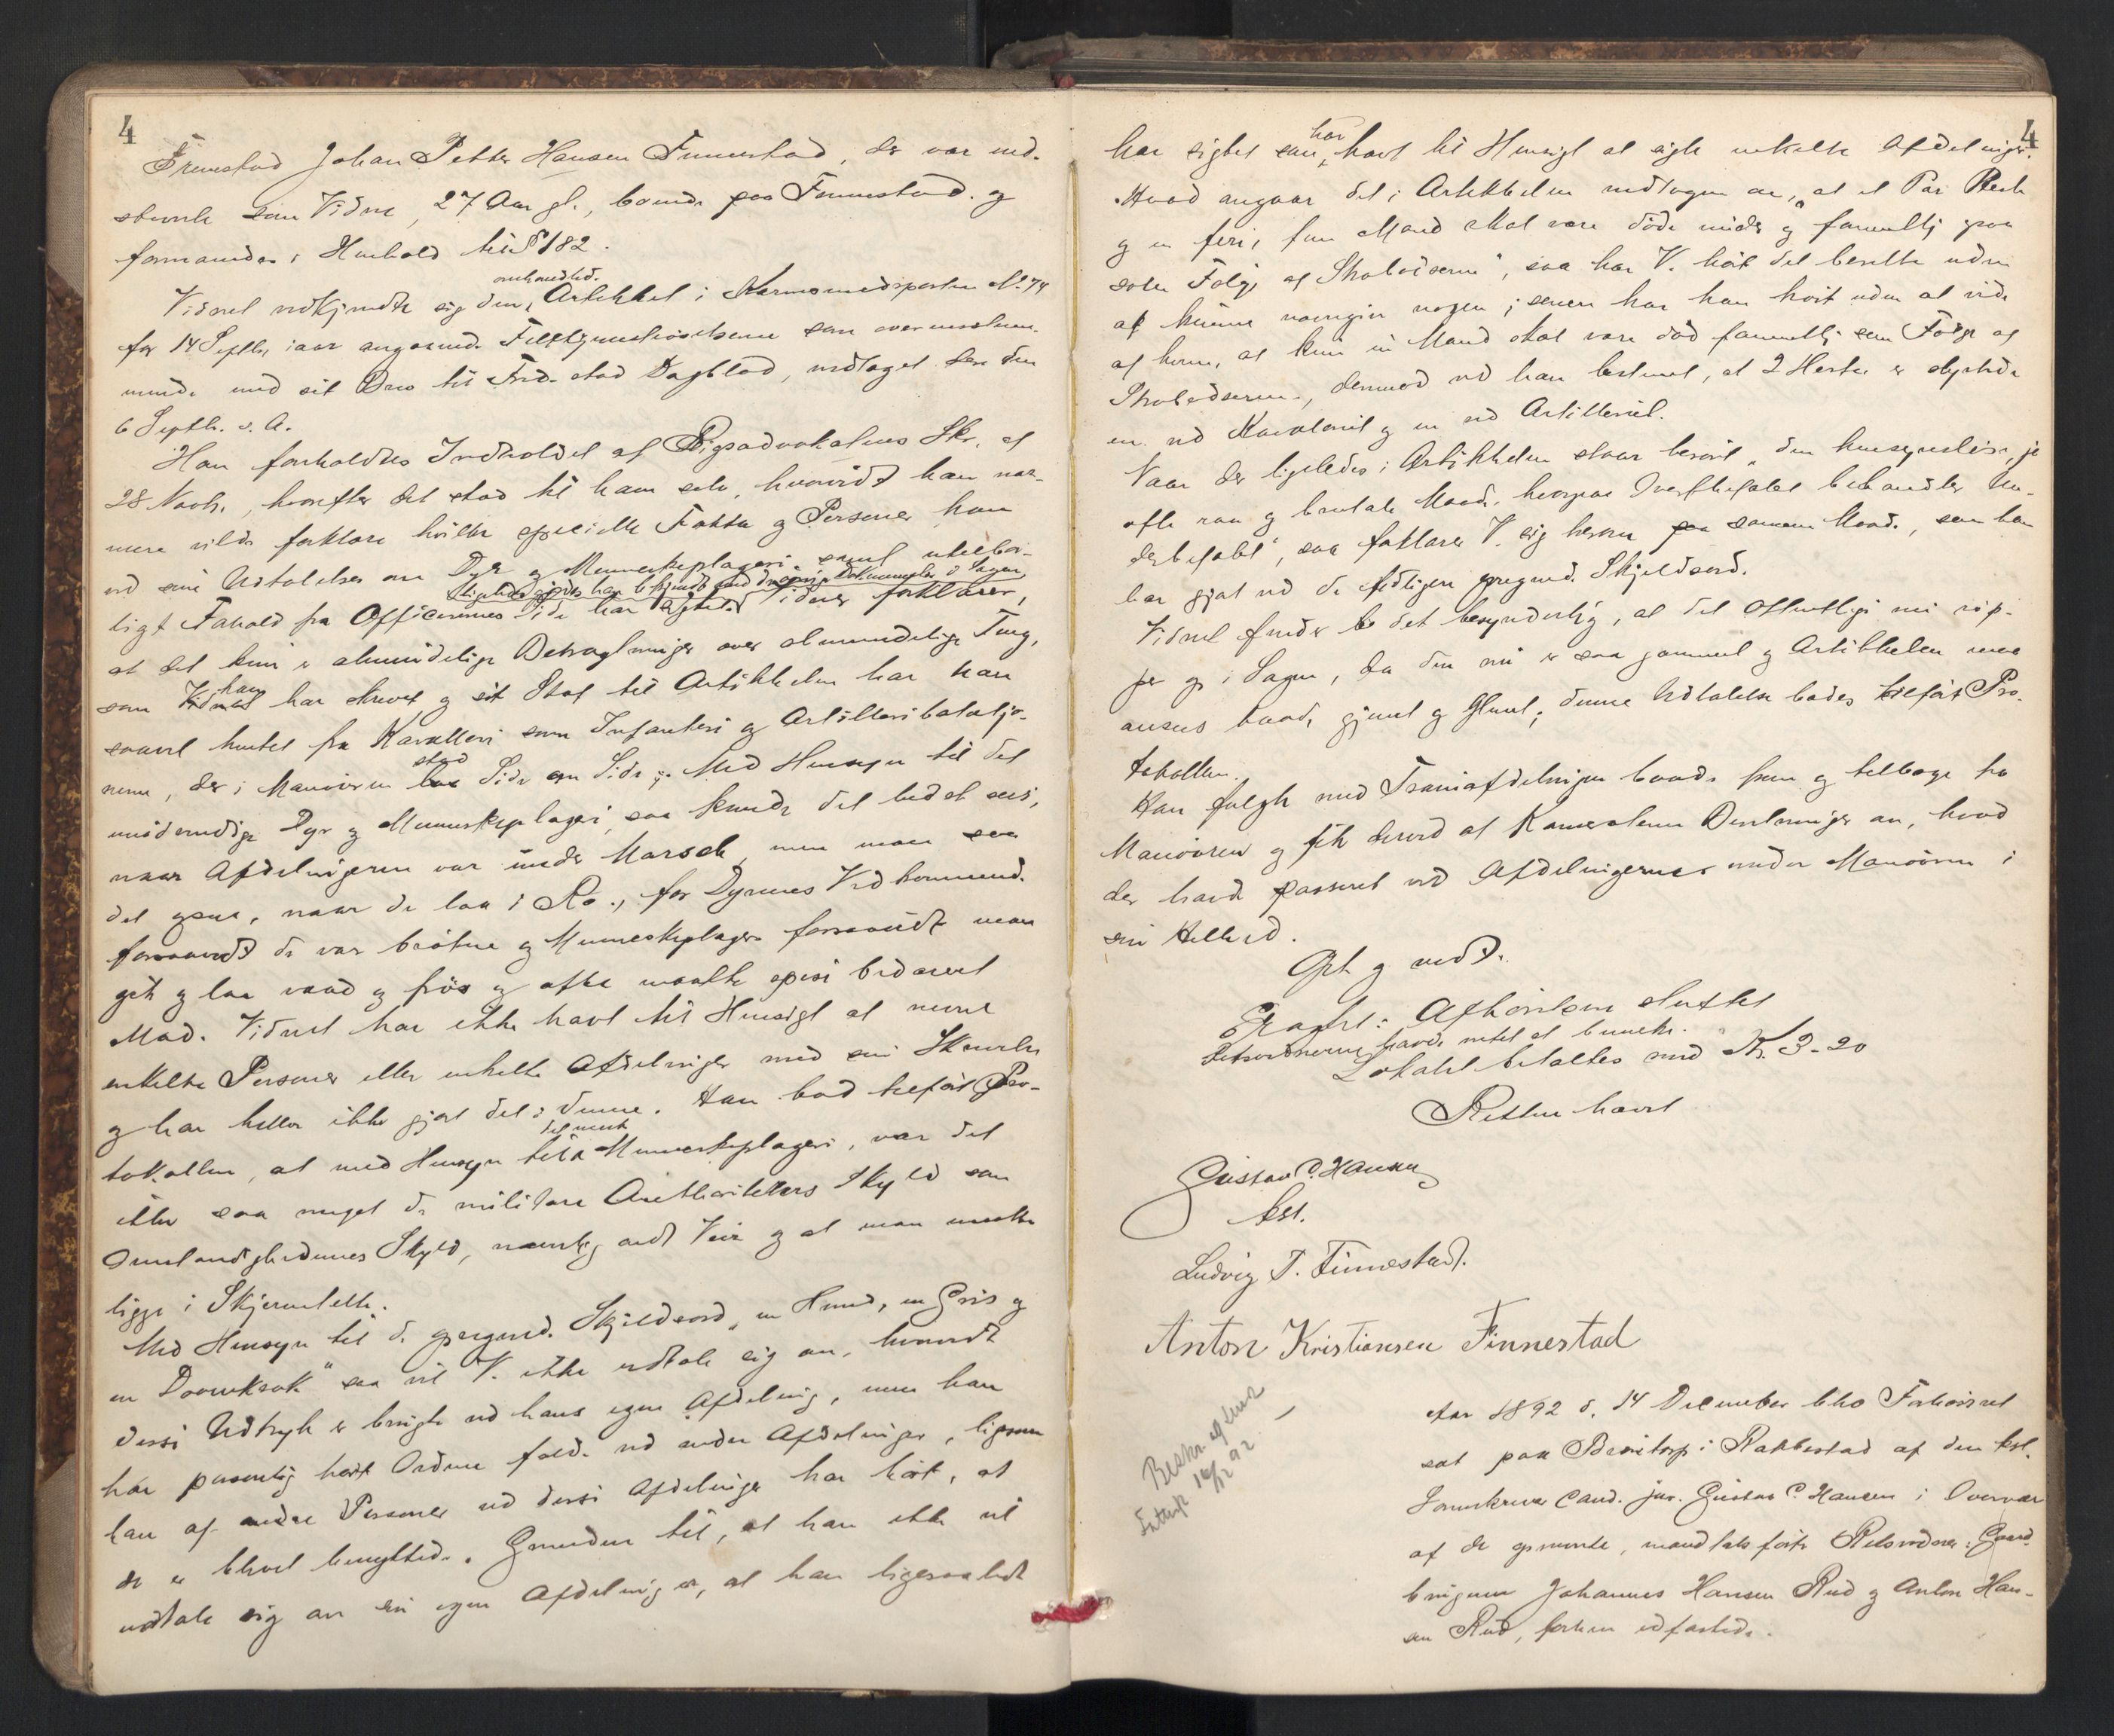 4
Fremstod Johan Petter Hansen Finnestad, der var ind-
stevnt som Vidne, 27 Aar gl., boende paa Finnestad og
formanedes i Henhold til § 182.
omhandlede
Vidnet vedkjendte sig den Artikkel i Kornsmedsposten No 74
for 14 Septbr iaar angaaende Felttjenestøvelserne som overensstem-
mende med sit Brev til Fred.stad Dagblad, indtaget der den
6 Septb. s. A.
Han foreholdtes Indholdet af Rigsadvokatens Skr. af
28 Novb., hvorefter det stod til ham selv, hvorvidt han nær-
mere vilde forklare hvilke specielle Fakta og Personer han
ved sine Udtalelser om Dyr og Menneskeplageri samt utilbør-
ligt Forhold fra Officerernes Side har sigtet
Ligeledes gjordes han bekjendt med de øvrige Dokumenter i Sagen
forklarer,
at det kun er almindelige Betragtninger over almindelige Ting,
som han har skrevet og sit Stof til Artikkelen har han
saavel hentet fra Kavalleri som Infanteri og Artilleribataljo-
nerne, der i Manøvren stod Side om Side. Med Hensyn til det
unødvendige Dyr og Menneskeplageri, saa kunde det lidet sees,
naar Afdelingerne var under Marsch, men man saa
det gjerne, naar de laa i Ro., for Dyrenes Vedkommende
forsaavidt de var brøtne og Menneskeplageri forsaavidt man
gik og laa vaad og frøs og ofte maatte spise bedærvet
Mad. Vidnet har ikke havt til Hensigt at nevne
enkelte Personer eller enkelte Afdelinger med sin Skrivelse
og har heller ikke gjort det i denne. Han bad tilført Pro-
tokollen, at med Hensyn til det nevnte Menneskeplageri, var det
ikke saa meget de militære Autoriteters Skyld som
Omstændighedernes Skyld, nemlig ondt Veir og at man maatte
ligge i Skjermtelte.
Med Hensyn til de paagjeld. Skjeldsord "en Hund, en Gris og
en Dovenksok" saa vil V. ikke udtale sig om, hvorvidt
disse Udtryk er brugte ved hans egen Afdeling, men han
har personlig hørt Ordene falde ved andre Afdelinger, ligesom
han af andre Personer ved disse Afdelinger har hørt, at
de er blevet benyttede. Grunden til, at han ikke vil
udtale sig om sin egen Afdeling er, at han ligesaalidt
4
har
har sigtet som havt til Hensigt at sigte enkelte Afdelinger.
Hvad angaar det i Artikkelen indtagne om, "at et Par Heste
og en fire, fem Mand skal være døde under og formentlig som
Følge af Strabadserne", saa har V. hørt det berette uden
at kunne navngive nogen; senere har han hørt uden at vide
af hvem, at kun en Mand skal være død formentlig som Følge af
Strabadserne, derimod ved han bestemt, at 2 Heste er styrtede
en ved Kavaleriet og en ved Artilleriet.
Naar der ligeledes i Artikkelen staar berørt "den hensynsløse, ja
ofte raa og brutale Maade, hvorpaa Overbefalet behandler Un-
derbefalet", saa forklarer V. sig herom paa samme Maade, som han
har gjort ved de førtidligere paagjeld. Skjeldsord.
Vidnet finder det besynderlig, at det Offentlige nu rip-
per op i Sagen, da den nu er saa gammel og Artikkelen maa
ansees baade gjemt og glemt; denne Udtalelse bades tilført Pro-
tokollen.
Han fulgte med Træniafdelingen baade frem og tilbage fra
Manøvren og fik derved af Kameratene Beretninger om, hvad
der havde passeret ved Afdelingerne under Manøvren i
sin Helhed.
Oplt og vedt.
Fragtet: Afhørelsen sluttet
Retsvidnerne havde intet at bemerke.
Lokalet betaltes med Kr. 3-20
Retten hævet
Gustav C. Hansen
kst.
Ludvig T. Finnestad.
Anton Kristiansen Finnestad
Beskr. afsendt
16/12 92
Aar 1892 d. 14 December blev Forhørsret
sat paa i Rakkestad af den kst.
Sorenskriver Cand. jur. Gustav C. Hansen i Overvær
af de opnevnte, mandtalsførte Retsvidner: Gaard-
brugerne Johannes Hansen Rud og Anton Han-
sen Rud, forhen edfæstede.